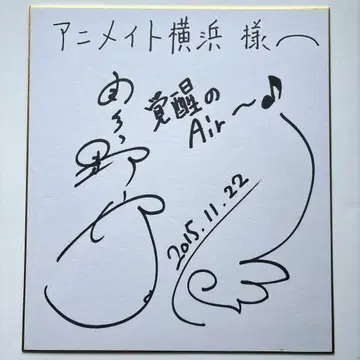 アニメイト横浜 様へ
覚醒の
Air〜♪
羽多野
2015.11.22